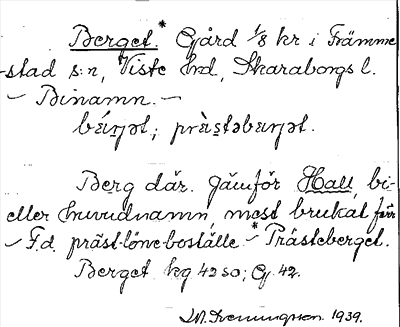 Berget.* Gård 1/8 kr i Främme-
stad s:n, Viste hd, Skaraborgs l.
— Binamn. —
bǽŋət; præ̀stəbæŋət.
Berg där. Jämför Hall, bi-
eller huvudnamn, mest brukat förr
— F.d. präst-löne-boställe — *Prästeberget.
Berget kg 42 so; G. 42.
1939.